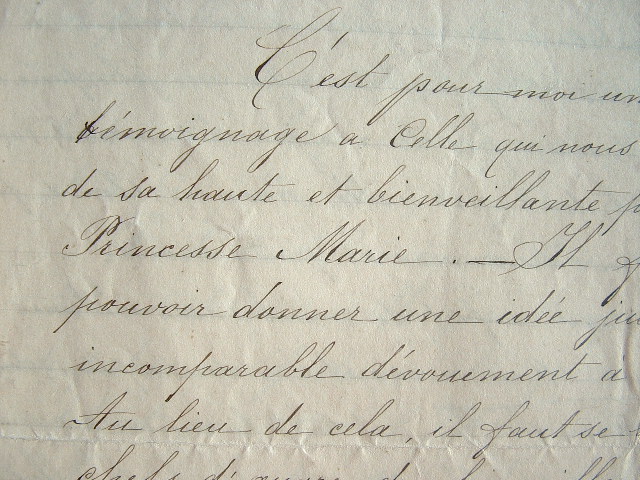 C'est pour moi un
témoignage a Celle qui nous
de sa haute et bienveillante
Princesse Marie. — Il
pouvoir donner une idée
incomparable dévouement à
Au lieu de cela, il faut se
chefs d'œuvre de